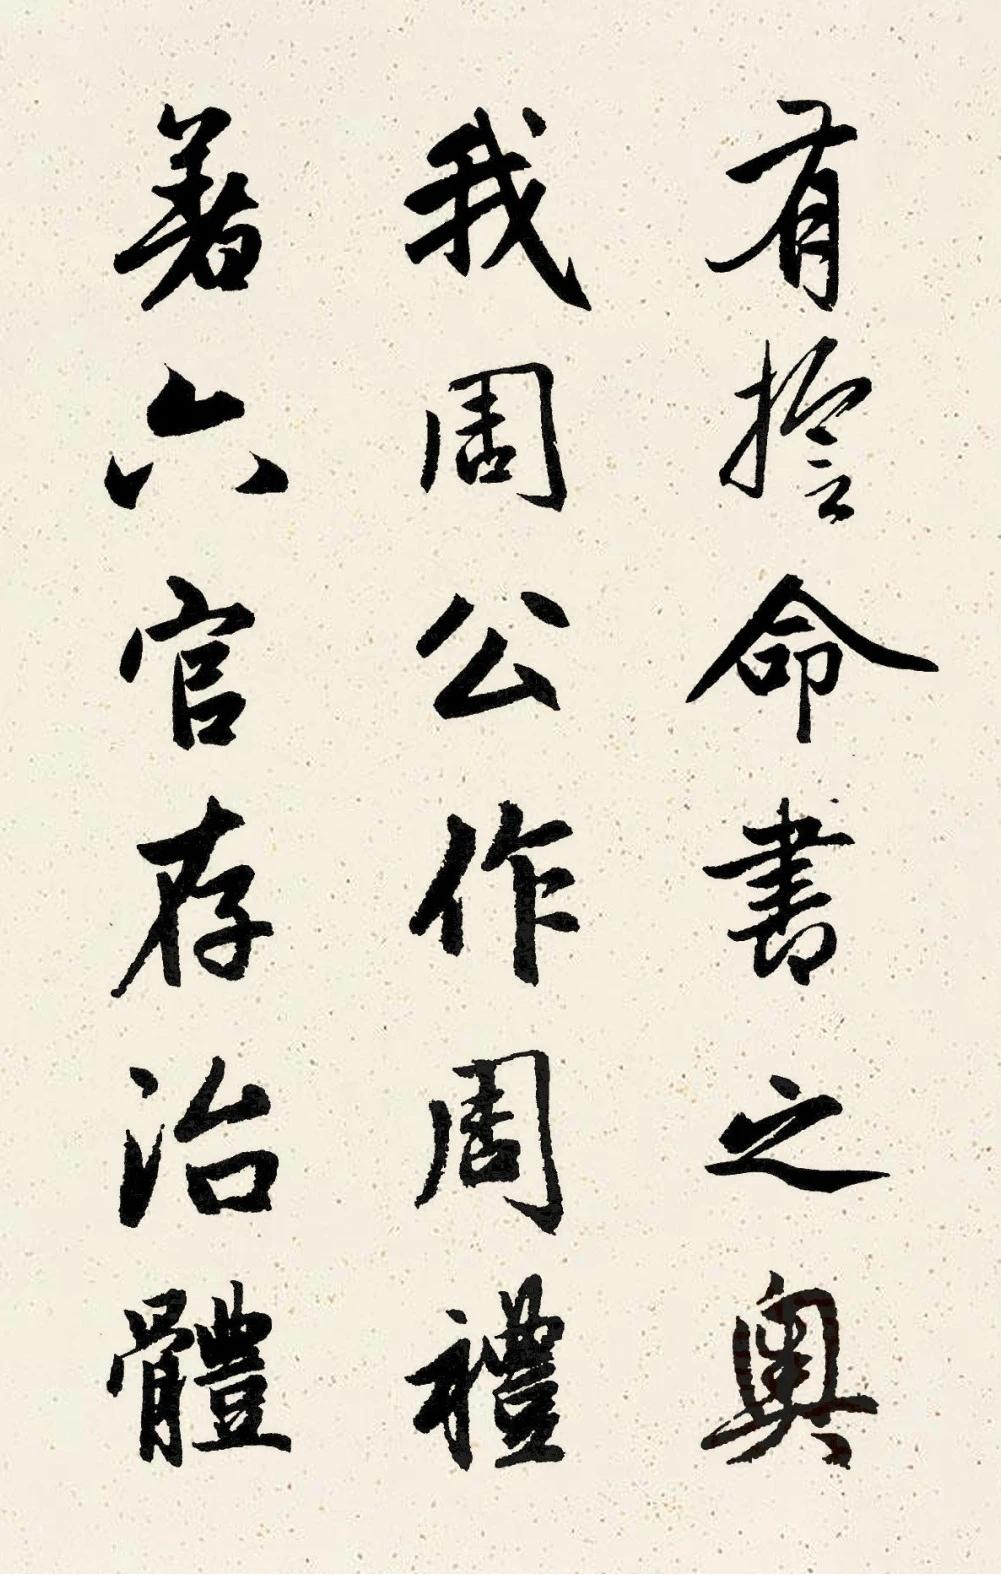 有誓命書之奧
我周公作周禮
著六官存治體